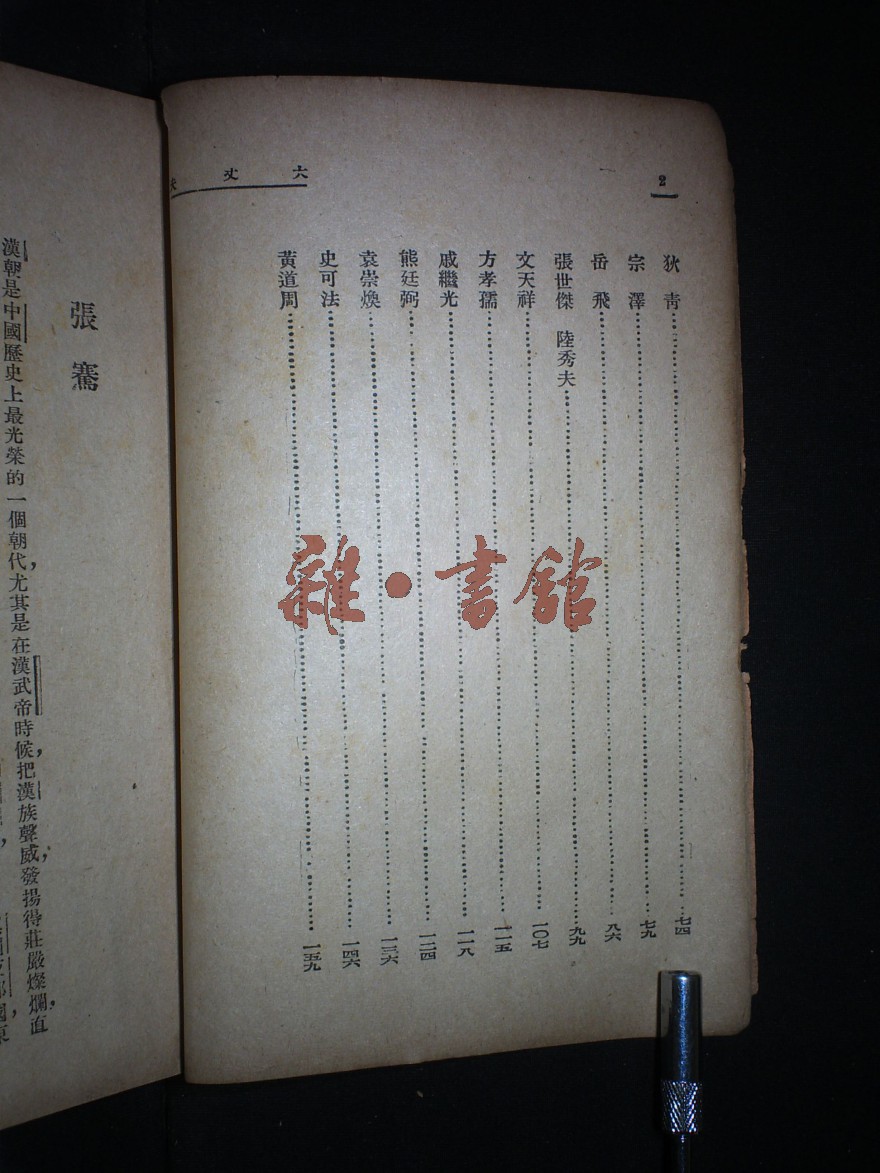 2
大丈夫
狄青…………七四
宗澤…………七九
岳飛…………八六
張世傑 陸秀夫…………九九
文天祥…………一〇七
方孝孺…………一一五
戚繼光…………一一八
熊廷弼…………一二四
袁崇煥…………一三六
史可法…………一四六
黃道周…………一五九
張騫
漢朝是中國歷史上最光榮的一個朝代，尤其是在漢武帝時候，把漢族聲威發揚得莊嚴燦爛，直
雜·書館